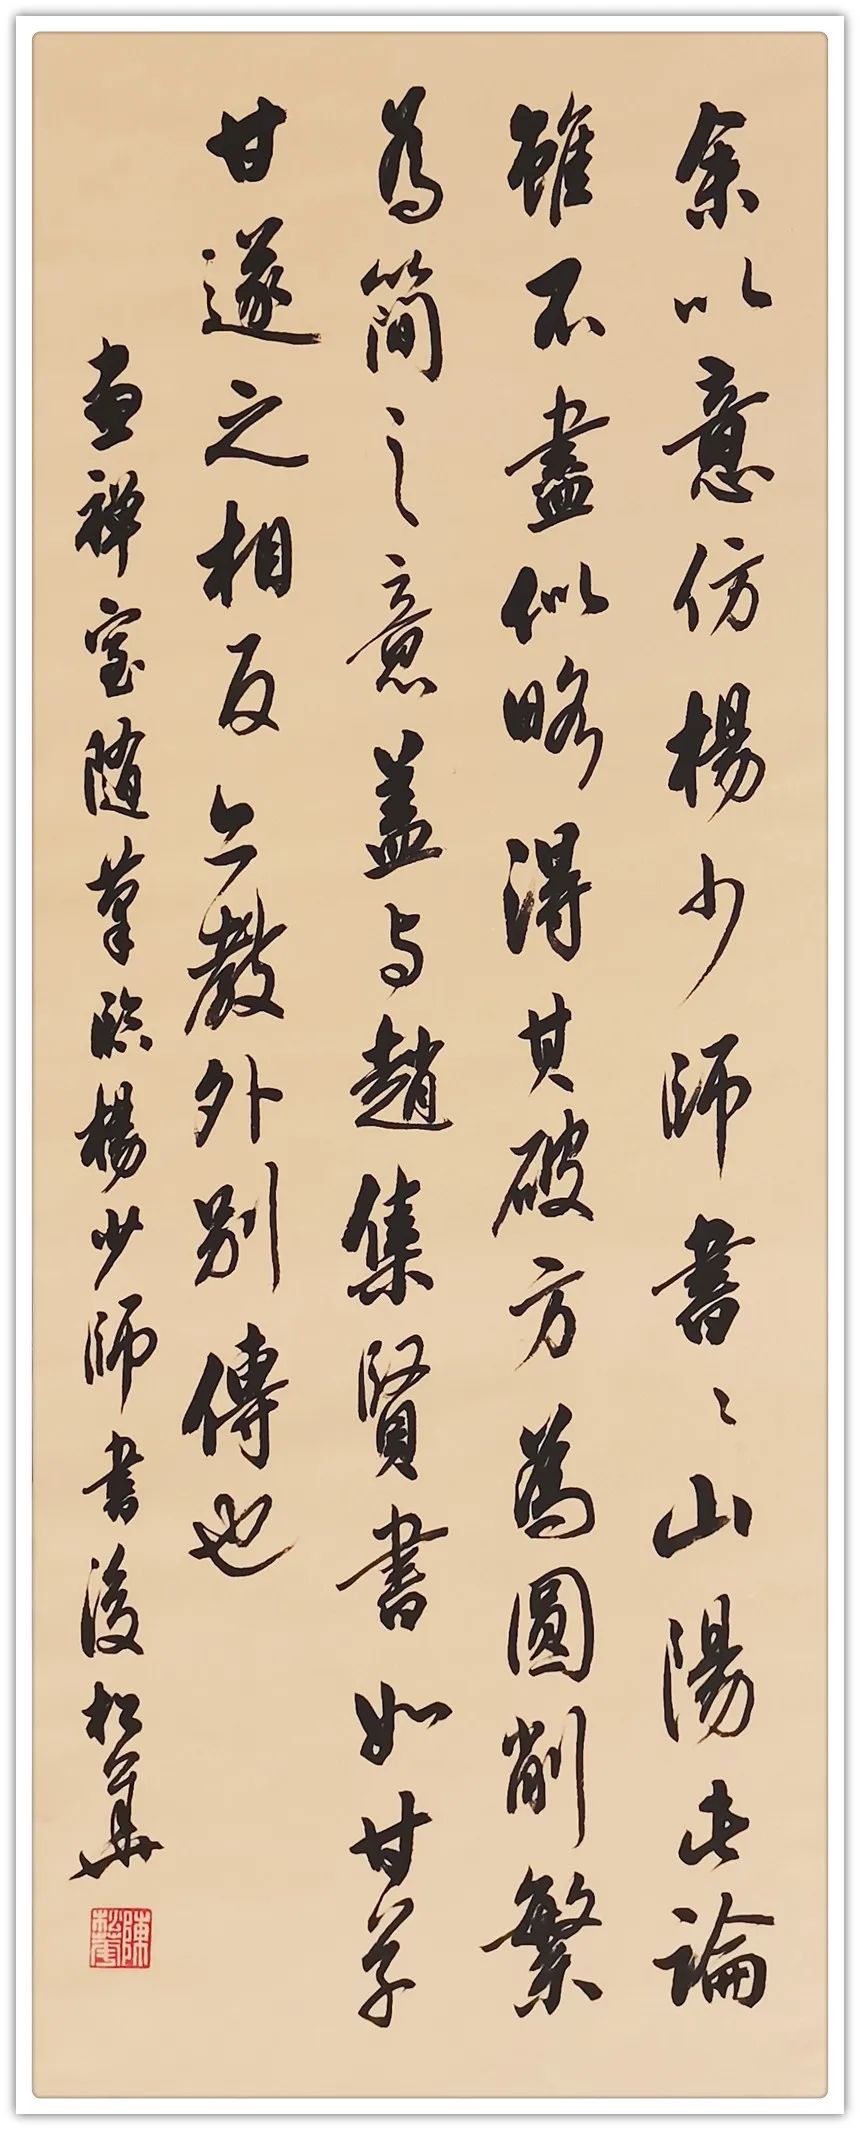 余以意仿楊少師書〻山陽此論
雖不盡似略得其破方爲圓削繁
爲簡之意蓋与趙集賢書如甘草
甘遂之相反亦教外别傳也
畫禅室随筆臨楊少師書後松華
陳松華